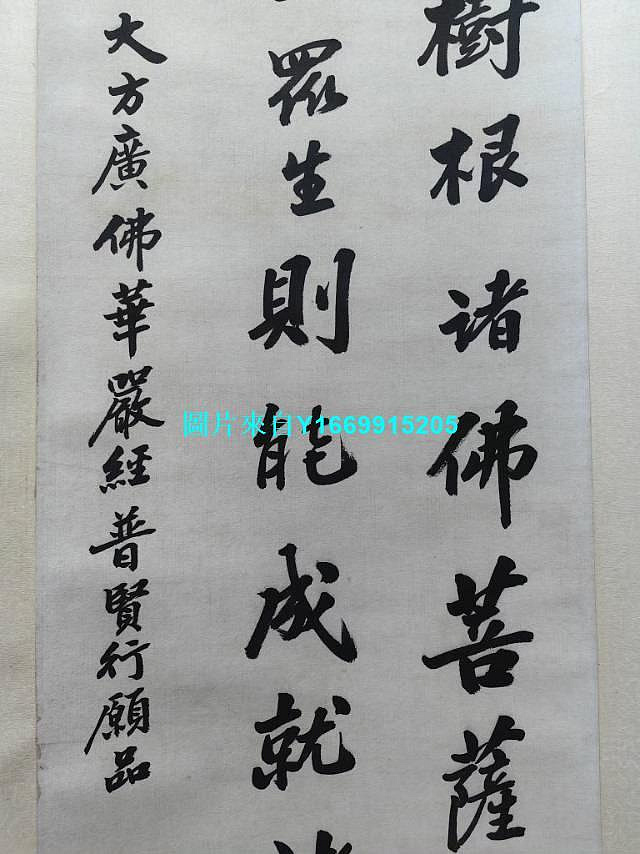 樹根諸佛菩薩
眾生則能成就
大方廣佛華嚴經普賢行願品
圖片來自Y1669915205